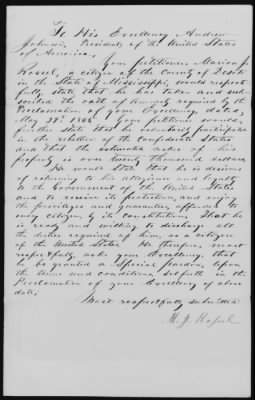 To His Excellency Andrew
Johnson, President of the United States
of America,
Your petitioner, Marion J.
a citizen of the County of Desoto
in the State of Mississippi, would respect-
fully state that he has taken and sub-
scribed the oath of Amnesty required by the
Proclamation of your Excellency dated,
May 29th 1865. Your petitioner would,
further state that he voluntarily participated
in the rebellion of the Confederate States
and that the estimated value of his
property is over twenty thousand dollars.
He would state that he is desirous
of returning to his allegiance and loyalty
to the Government of the United States
and to receive its protection, and enjoy
the privileges and guaranties, afforded to
every citizen by its constitution, That he
is ready and willing to discharge all
the duties required of him, as a citizen
of the United States. He therefore, most
respectfully asks your Excellency, that
he be granted a Special pardon, upon
the terms and conditions setforth in the
Proclamation of your Excellency of above
date;
Most respectfully submitted
M. J.